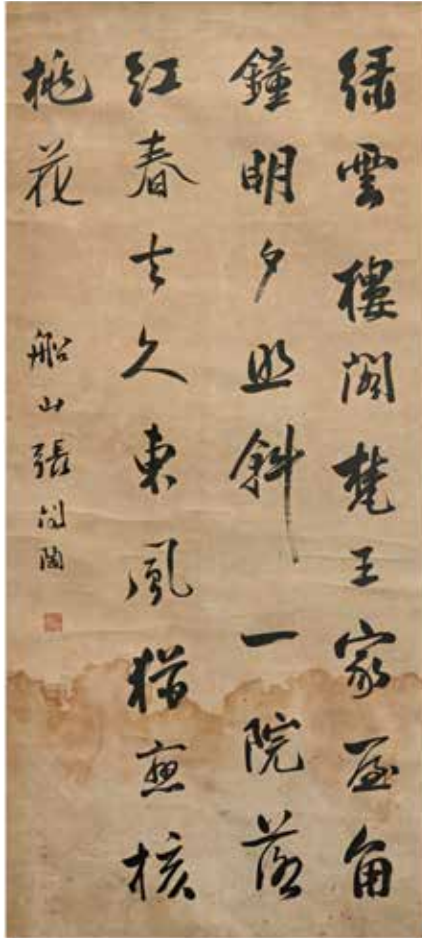 綠雲樓閣梵王家屋角
鐘明夕照斜一院落
紅春去久東風猶戀核
桃花
船山張問陶